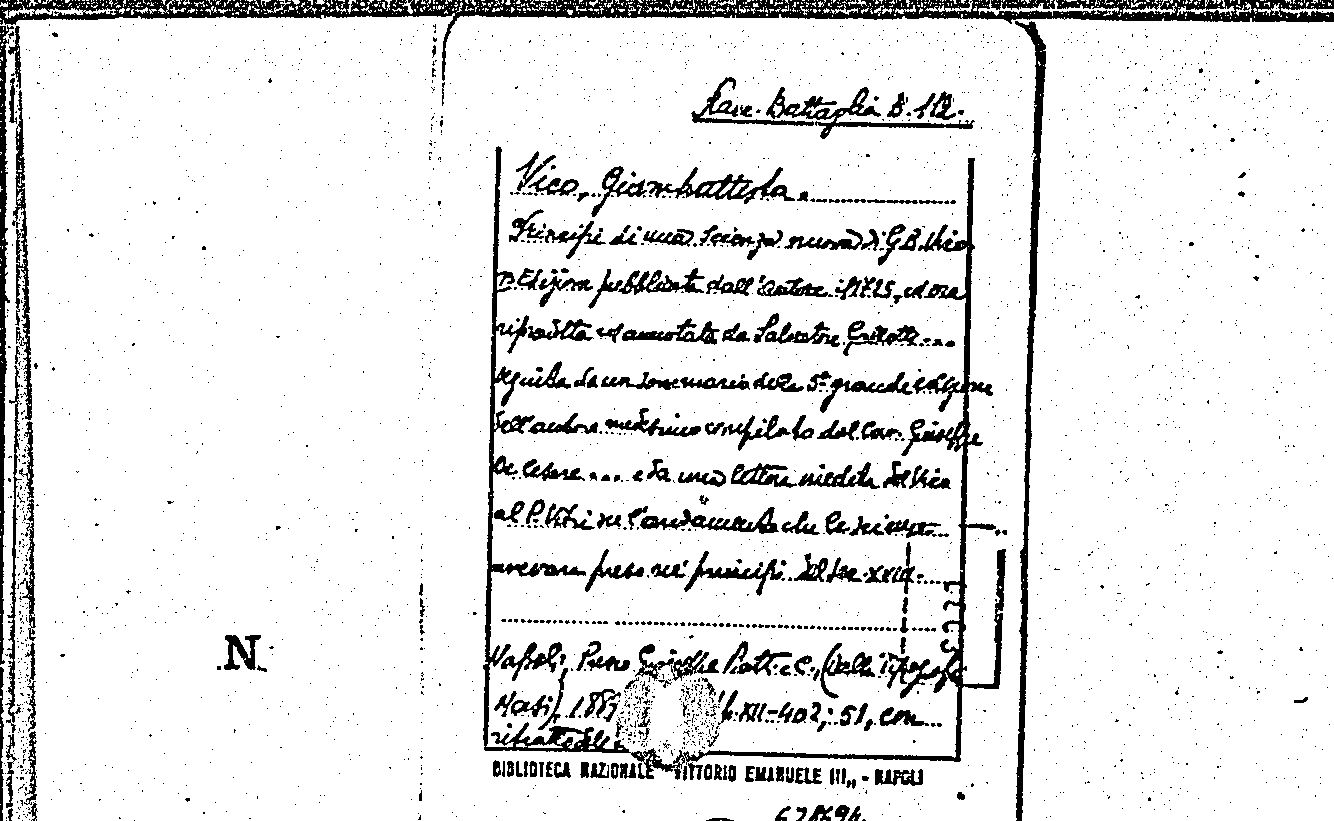 Racc. Battaglia B. 112.
Vico, Giambattista.
Principi di una Scienza nuova di G.B. Vico
Edizione pubblicata dall'autore il 1725, ed ora
riprodotta ed annotata da Salvatore Gallotti...
seguita da un sommario della 5ª grande edizione
dell'autore medesimo compilato dal Cav. Giuseppe
De Cesare .... e da una lettera inedita del Vico
al P. Vitri su l'andamento che le scienze
avevan preso ne' principi del sec. XVIII.
Napoli, Presso Giuseppe Piatti e C., (Dalla Tipografia
N
Masi), XII-402; 51, con
ritratto dell'
BIBLIOTECA NAZIONALE "VITTORIO EMANUELE III„ - NAPOLI